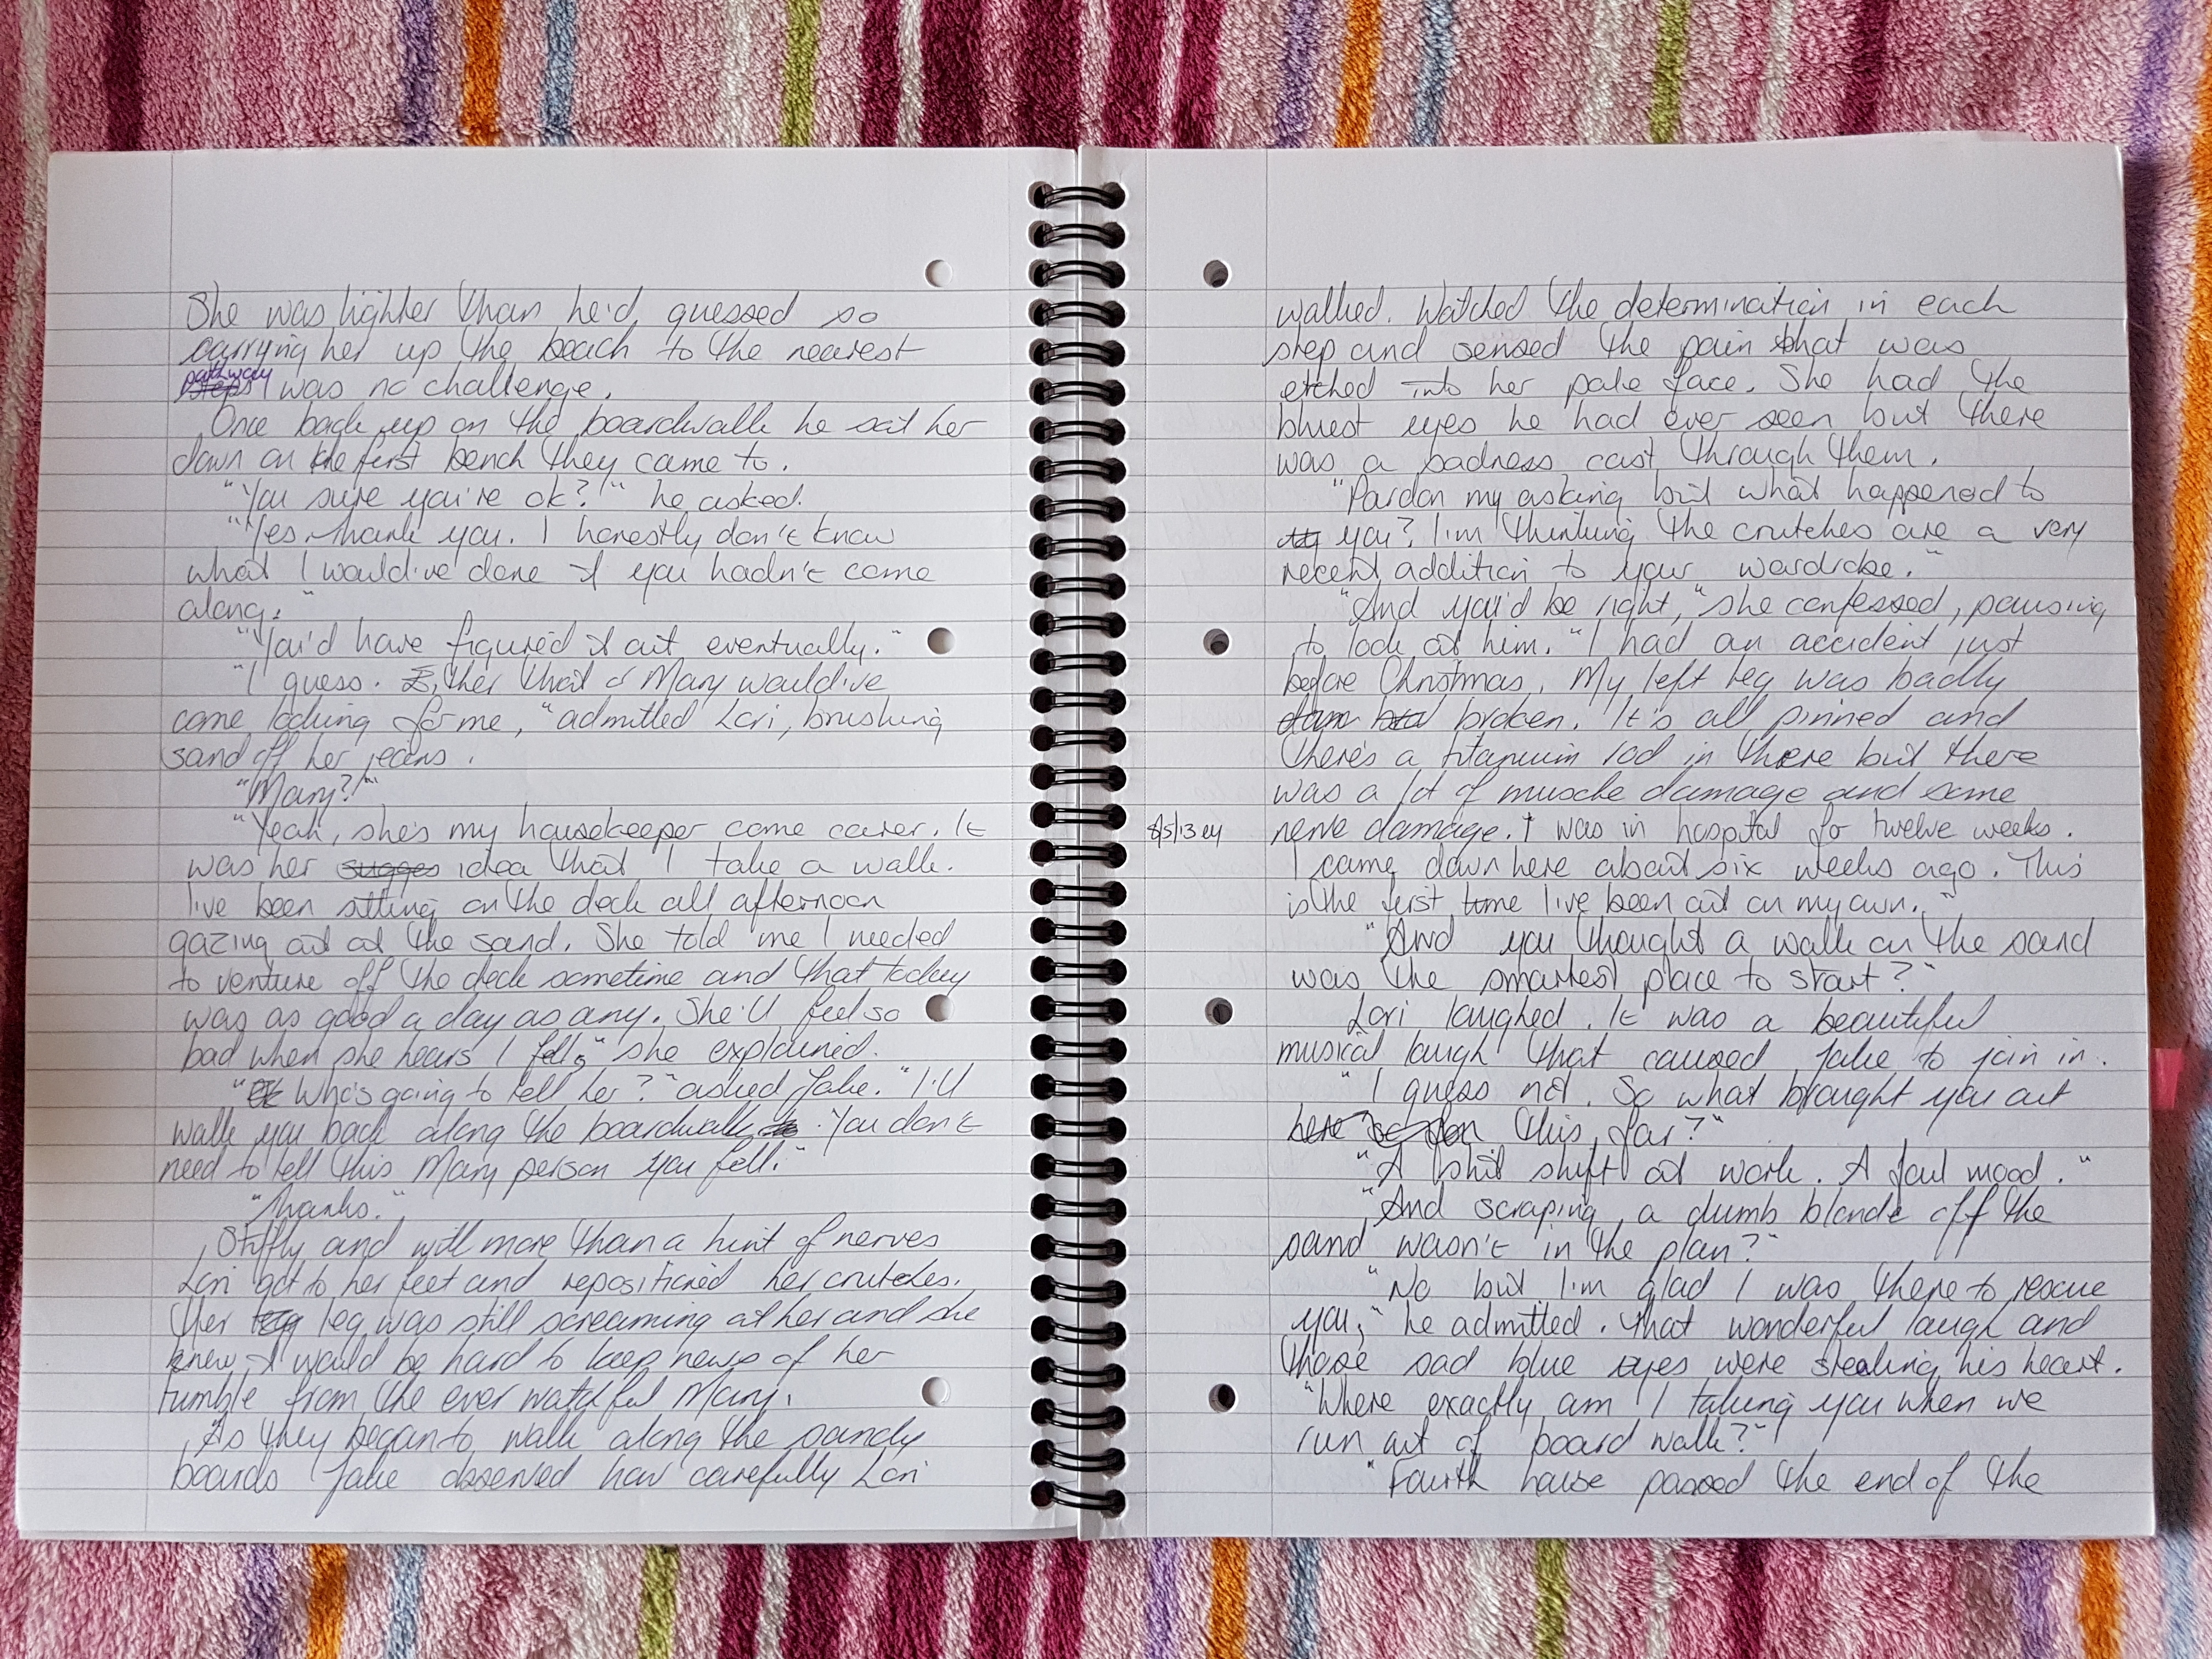 She was lighter than he'd guessed so
carrying her up the beach to the nearest
pathway
steps was no challenge.
Once back up on the boardwalk he sat her
down on the first bench they came to.
"You sure you're ok?" he asked.
"Yes thank you. I honestly don't know
what I would've done if you hadn't come
along."
"You'd have figured it out eventually."
"I guess. Either that or Mary would've
come looking for me," admitted Lori, brushing
sand off her jeans.
"Mary?"
"Yeah, she's my housekeeper come carer. It
was her sugges idea that I take a walk.
I've been sitting on the deck all afternoon
gazing out at the sand. She told me I needed
to venture off the deck sometime and that today
was as good a day as any. She'll feel so
bad when she hears I fell," she explained.
"Who's going to tell her?" asked Jake. "I'll
walk you back along the boardwalk to. You don't
need to tell this Mary person you fell."
"Thanks."
Stiffly and with more than a hint of nerves
Lori got to her feet and repositioned her crutches.
Her leg leg was still screaming at her and she
knew it would be hard to keep news of her
tumble from the ever watchful Mary.
As they began to walk along the sandy
boards Jake observed how carefully Lori
walked. Watched the determination in each
step and sensed the pain that was
etched into her pale face. She had the
bluest eyes he had ever seen but there
was a sadness cast through them.
"Pardon my asking but what happened to
you? I'm thinking the crutches are a very
recent addition to your wardrobe."
"And you'd be right," she confessed, pausing
to look at him. "I had an accident just
before Christmas. My left leg was badly
broken. It's all pinned and
there's a titanium rod in there but there
was a lot of muscle damage and some
8/5/13 ey nerve damage. I was in hospital for twelve weeks.
I came down here about six weeks ago. This
is the first time I've been out on my own."
"And you thought a walk on the sand
was the smartest place to start?"
Lori laughed. It was a beautiful
musical laugh that caused Jake to join in.
"I guess not. So what brought you out
here this far?"
"A shit shift at work. A foul mood."
"And scraping a dumb blonde off the
sand wasn't in the plan?"
"No but I'm glad I was there to rescue
you," he admitted. That wonderful laugh and
those sad blue eyes were stealing his heart.
"Where exactly am I taking you when we
run out of board walk?"
"Fourth house passed the end of the